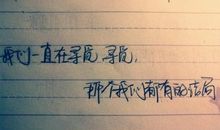 我们一直在寻觅，寻觅，
那个我们都有的结局